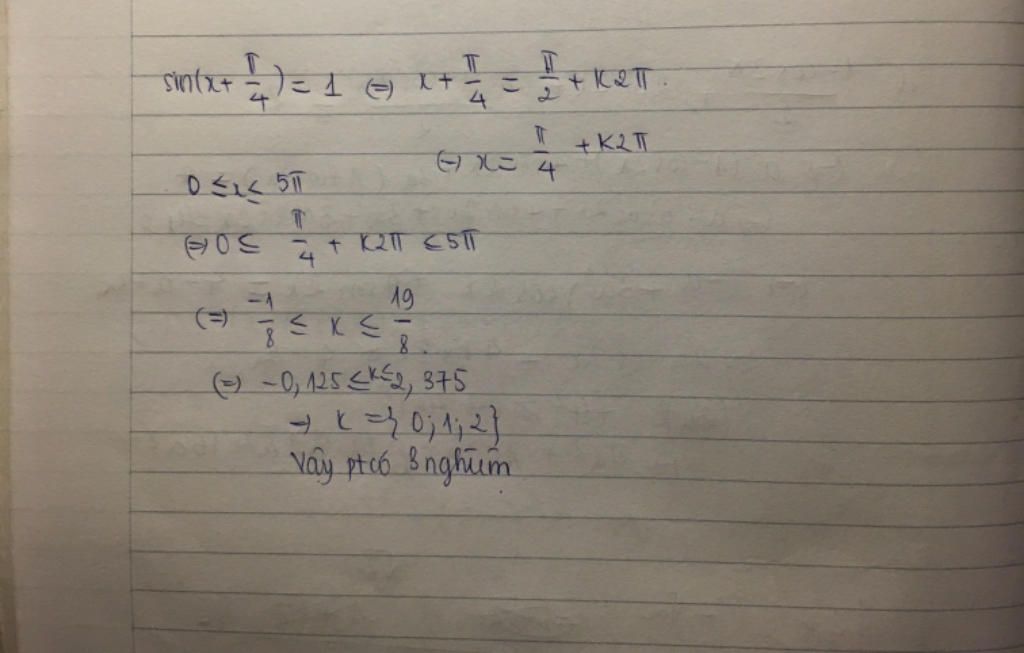 sin(x+ π/4) = 1 (=) x + π/4 = π/2 + K2π.
(=) x = π/4 + K2π
0 ≤ x ≤ 5π
(=) 0 ≤ π/4 + K2π ≤ 5π
(=) -1/8 ≤ K ≤ 19/8.
(=) -0,125 ≤ K ≤ 2,375
→ K = { 0; 1; 2}
Vậy pt có 3 nghiệm